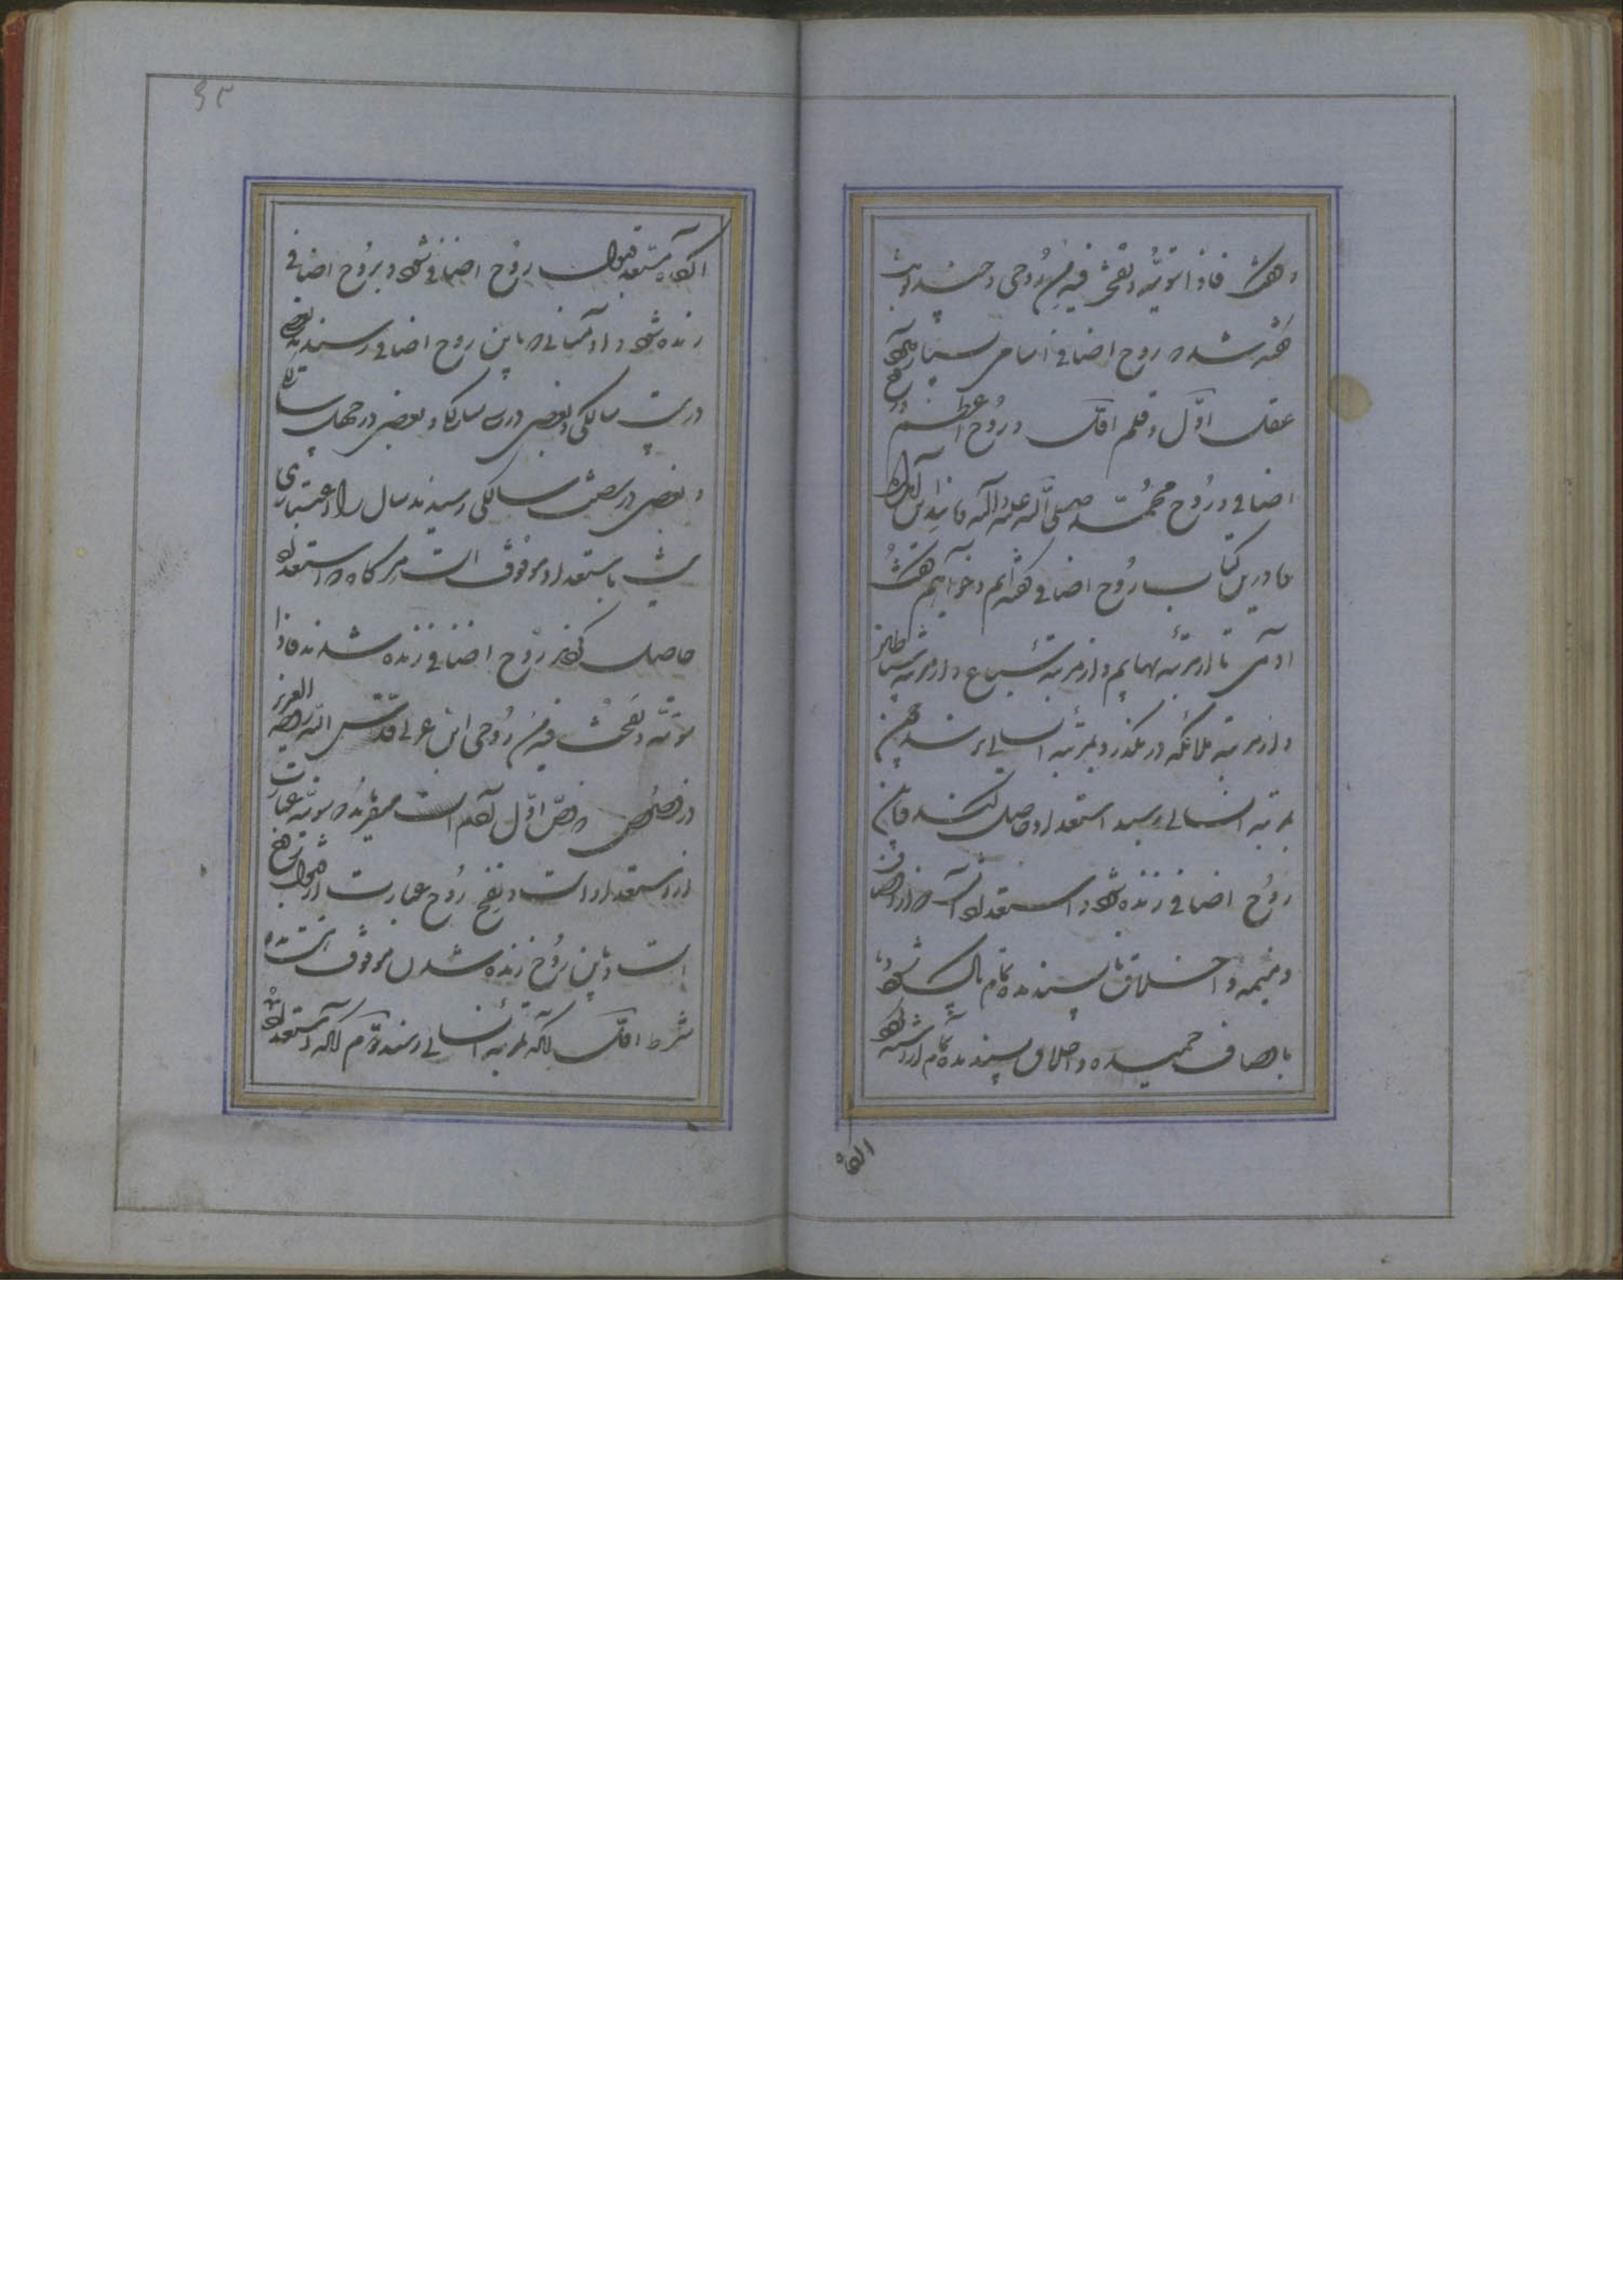 و گفت فاذا سویته و نفخت فیه من روحی و چند نوبت
گفته شد که روح اضافی اسامی بسیار دارد
عقل اول و قلم اول و روح اعظم و روح
اضافی و روح محمد صلی الله علیه و آله و مانند این آمده
ما درین کتاب روح اضافی گفته‌ایم و خواهیم گفت
آدمی تا از مرتبه بهایم و از مرتبه سباع و از مرتبه شیاطین
و از مرتبه ملائکه در نگذرد و بمرتبه انسانی نرسد چون
بمرتبه انسانی رسید استعداد حاصل کند و باین
روح اضافی زنده شود و استعداد آنست که از اوصاف
ذمیمه و اخلاق ناپسندیده تمام پاک شود و
باوصاف حمیده و اخلاق پسندیده تمام آراسته شود
آنگاه
۹۳
آنگاه مستعد قبول روح اضافی شود و بروح اضافی
زنده شود و آدمیانی که باین روح اضافی رسیدند بعضی
در بیست سالگی و بعضی در سی سالگی و بعضی در چهل سالگی
و بعضی در شصت سالگی رسیدند سال را اعتباری
نیست باستعداد موقوف است هر گاه که استعداد
حاصل کردند بروح اضافی زنده شدند فاذا
سویته و نفخت فیه من روحی ابن عربی قدس الله روحه العزیز
در فصوص در فص اول آورده است میفرماید که سویته عبارت
از استعداد است و نفخ روح عبارت از قبول روح
است و باین روح زنده شدن موقوف است بدو
شرط اول آنکه بمرتبه انسانی رسند دوم آنکه استعداد